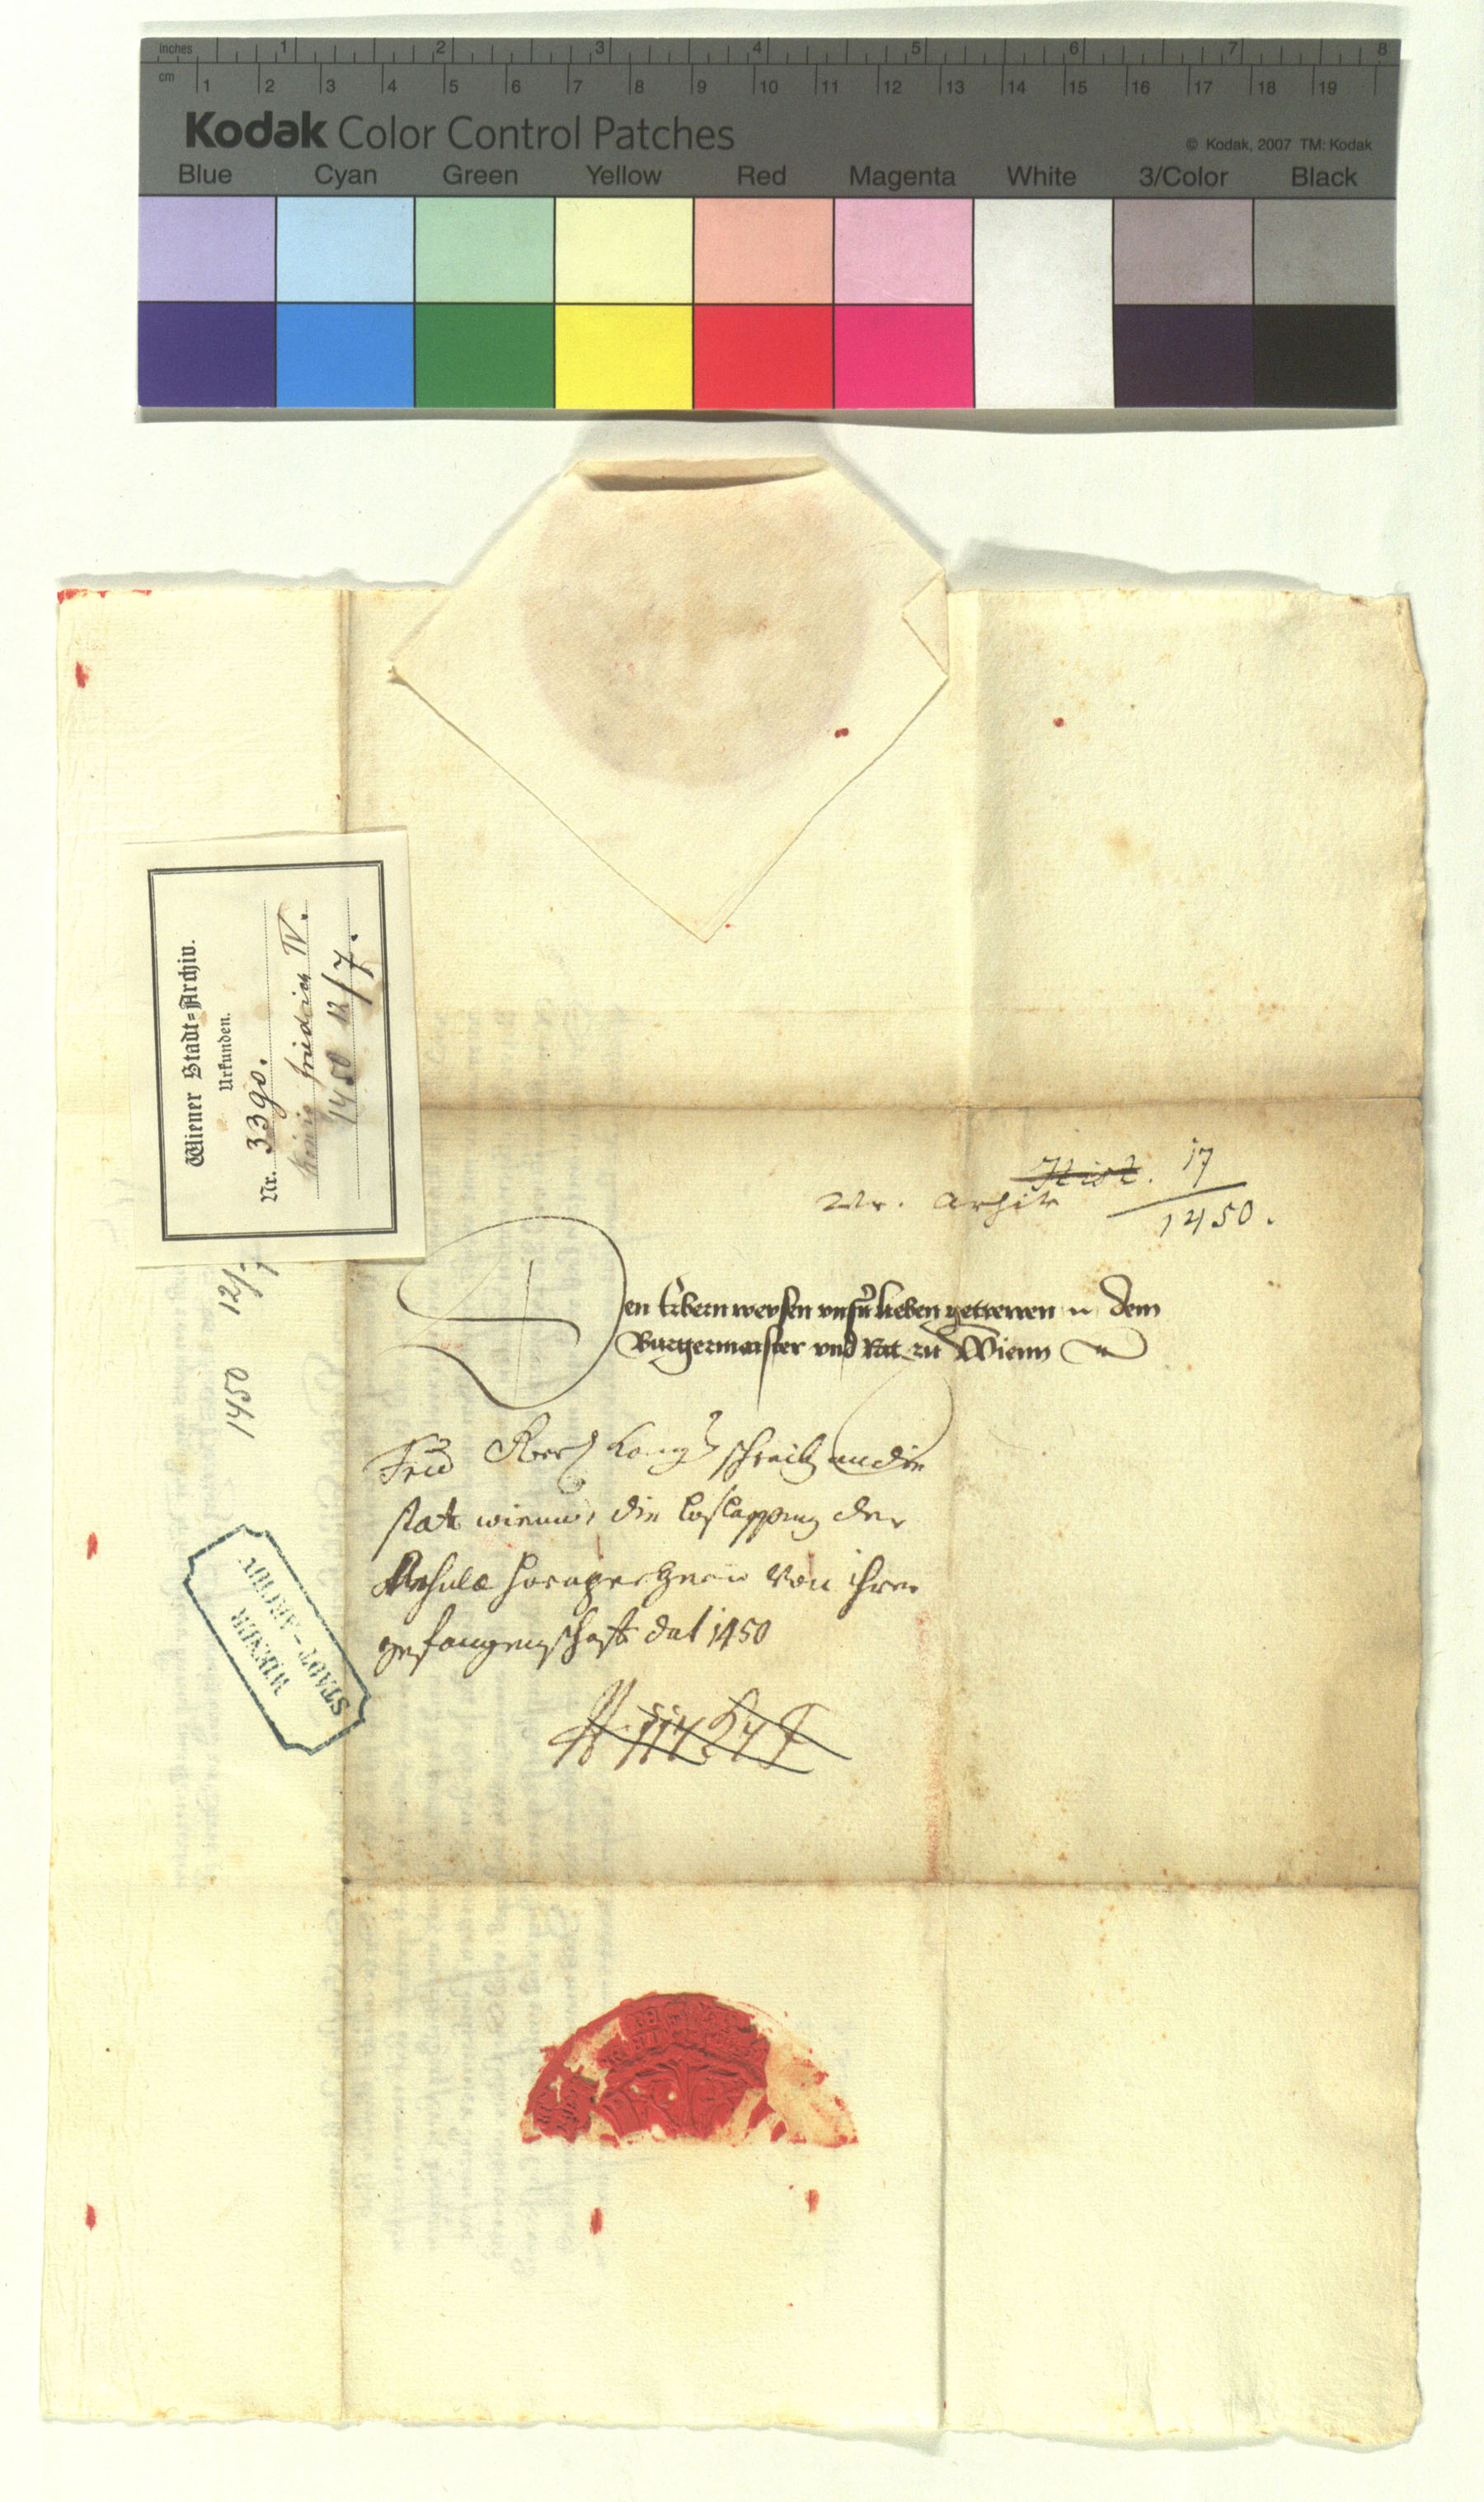 inches 1 2 3 4 5 6 7 8
cm 1 2 3 4 5 6 7 8 9 10 11 12 13 14 15 16 17 18 19
Kodak Color Control Patches
© Kodak, 2007 TM: Kodak
Blue Cyan Green Yellow Red Magenta White 3/Color Black
Wiener Stadt-Archiv.
Urkunden.
Nr. 3390.
König Friedrich IV.
1450 12/7.
Hist. 17
1450.
1450 12/7
Den Erbern weysen unsern lieben getrewen dem
Burgermaister und Rat zu Wienn
schreib an die
stat wienn, die loslassung der
von ihrer
gefangenschaft dat 1450
WIENER
STADT-ARCHIV.